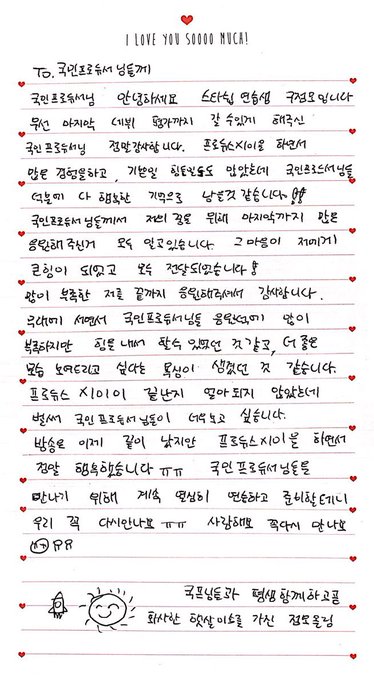 I LOVE YOU SOOOO MUCH!
To. 국민프로듀서님들께
국민프로듀서님 안녕하세요 스타쉽 연습생 구정모입니다
우선 마지막 데뷔 평가까지 갈 수있게 해주신
국민프로듀서님 정말감사합니다. 프로듀스X101을 하면서
많은 경험을하고, 기쁜일 힘든일도 많았는데 국민프로듀서님들
덕분에 다 행복한 기억으로 남을것 같습니다!!
국민프로듀서님들께서 저의 꿈을 위해 마지막까지 많은
응원해 주신거 모두 알고있습니다. 그 마음이 저에게
큰힘이 되었고 모두 전달되었습니다!
많이 부족한 저를 끝까지 응원해주셔서 감사합니다.
무대에 서면서 국민프로듀서님들 응원덕에 많이
부족하지만 힘을 내서 할수 있었던 것 같고, 더 좋은
모습 보여드리고 싶다는 욕심이 생겼던 것 같습니다.
프로듀스 X101이 끝난지 얼마 되지 않았는데
벌써 국민 프로듀서님들이 너무보고 싶습니다.
방송은 이제 끝이 났지만 프로듀스X101을 하면서
정말 행복했습니다 ㅠㅠ 국민프로듀서님들을
만나기 위해 계속 열심히 연습하고 준비할테니
우리 꼭 다시만나요 ㅠㅠ 사랑해요 꼭다시 만나요
국프님들과 평생함께하고픈
화사한 햇살미소를 가진 정모올림